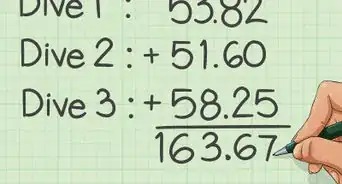 Dive 1 : 53.82
Dive 2 : + 51.60
Dive 3 : + 58.25
163.67